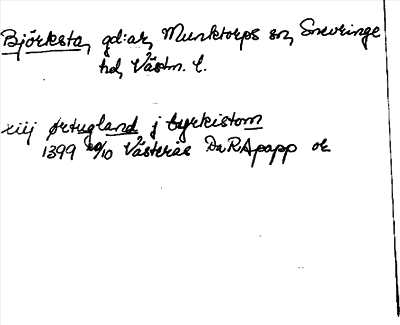 Björksta, gd:ar, Munktorps sn, Snevringe
hd, Västm. l.
xiij ørtugland j byrkistom
1399 20/10 Västerås DaRApapp or